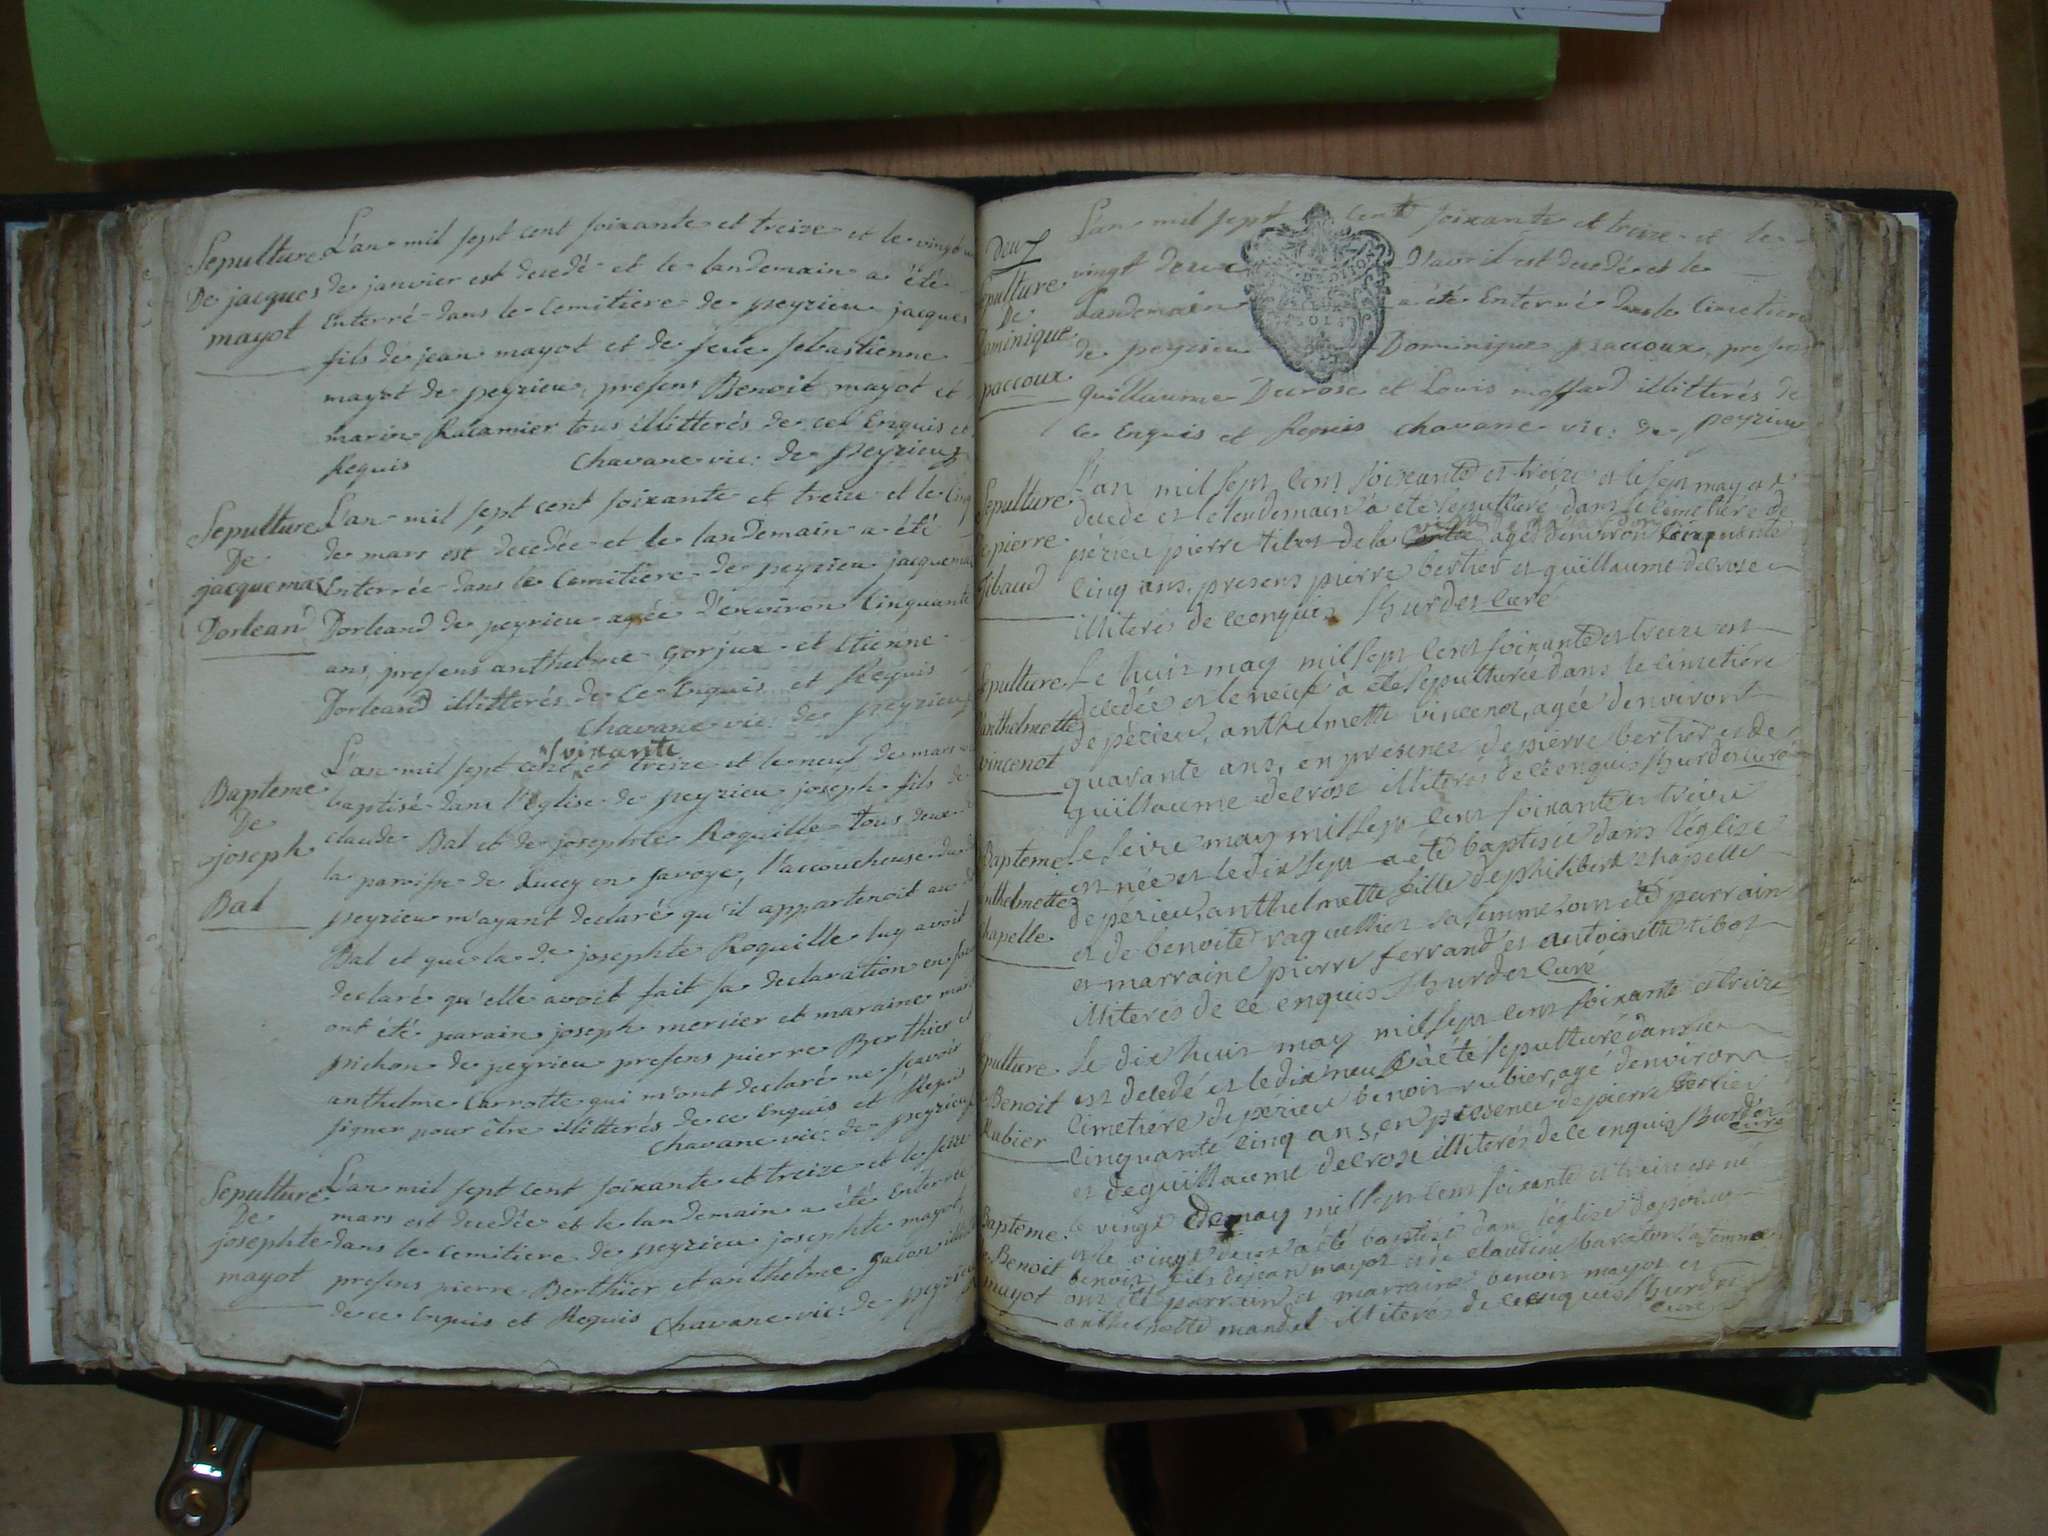 Sepulture
De jacques
mayot
L'an mil sept cent soixante et treize et le vingt
de janvier est decedé et le landemain a été
enterré dans le cemitiere de peyrieu jacques
fils de jean mayot et de feüe sebastienne
mayot de peyrieu, presens Benoit mayot et
marin Racamier tous illitterés de ce Enquis et
Requis Chavane vic: de peyrieu
Sepulture
De
jacquemaz
Dorleand
L'an mil sept cent soixante et treize et le cinq
de mars est decedée et le landemain a été
Enterrée dans le Cemitiere de peyrieu jacquema
Dorleand de peyrieu agée d'environ cinquante
ans, presens anthelme gorjux et Etienne
Dorleand illitterés de ce Enquis et Requis
Chavane vic: de peyrieu
Bapteme
De
joseph
Bal
soixante
L'an mil sept cent et treize et le neuf de mars
baptisé dans l'Eglise de peyrieu joseph fils de
claude Bal et de josephte Roquille tous deux
la paroisse de Lucey en savoye, l'accoucheuse de
peyrieu m'ayant declaré qu'il appartenoit au
Bal et que la de josephte Roquille luy avoit
declaré qu'elle avoit fait sa declaration en
ont été parain joseph mercier et maraine
pichon de peyrieu presens pierre Berthier et
anthelme Carrotte qui m'ont declaré ne sçavoir
signer pour être illitterés de ce Enquis et Requis
Chavane vic: de peyrieu
Sepulture
De
josephte
mayot
L'an mil sept cent soixante et treize et le
mars est decedée et le landemain a été enterrée
dans le cemitiere de peyrieu josephte mayot
presens pierre Berthier et anthelme gacon
de ce Enquis et Requis Chavane vic: de peyrieu
Sepulture
De
Dominique
paccoux
L'an mil sept cent soixante et treize et le
vingt deux D'avril est decedé et le
Landemain a été Enterré dans le Cimetiere
de peyrieu Dominique paccoux, presens
guillaume Decrose et Louis mossard illitterés de
ce Enquis et Requis chavane vic: de peyrieu
Sepulture
de pierre
Tibaud
L'an mil sept cent soixante et treize et le sept may est
decede et le lendemain à été sepulturé dans le cimetiére de
pézieu pierre tibot de la agé d'environ cinquante
cinq ans, presens pierre bertier et guillaume decrose
illiterés de ce enquis hurdet curé
Sepulture
anthelmette
vincenot
Le huit may mil sept cent soixante et treize est
decedée et le neuf à été sepulturée dans le cimetiére
de pézieu, anthelmette vincenot, agée d'environt
quarante ans, en presence de pierre bertier et de
guillaume decrose illiterés de ce enquis hurdet curé
Bapteme
anthelmette
chapelle
Le seize may mil sept cent soixante et treize
est née et le dix sept a eté baptisée dans l'église
de pézieu anthelmette fille de philibert chapelle
et de benoite raquellier sa femme, ont été parrain
et marraine pierre ferrand et antoinette tibot
illiterés de ce enquis hurdet curé
Sepulture
Benoit
Rubier
Le dix huit may mil sept cent soixante et treize
est decedé et le dix neuf à été sepulturé dans le
cimetiére de pézieu benoit rubier, agé d'environ
cinquante cinq ans, en presence de pierre bertier
et de guillaume decrose illiterés de ce enquis hurdet
curé
Bapteme
Benoit
mayot
le vingt de may mil sept cent soixante et treize est né
et le vingt deux a été baptisé dans l'église de pézieu
benoit fils de jean mayot et de claudine sa femme
ont été parrain et marraine benoit mayot et
anthelmette mandet illiterés de ce enquis hurdet
curé